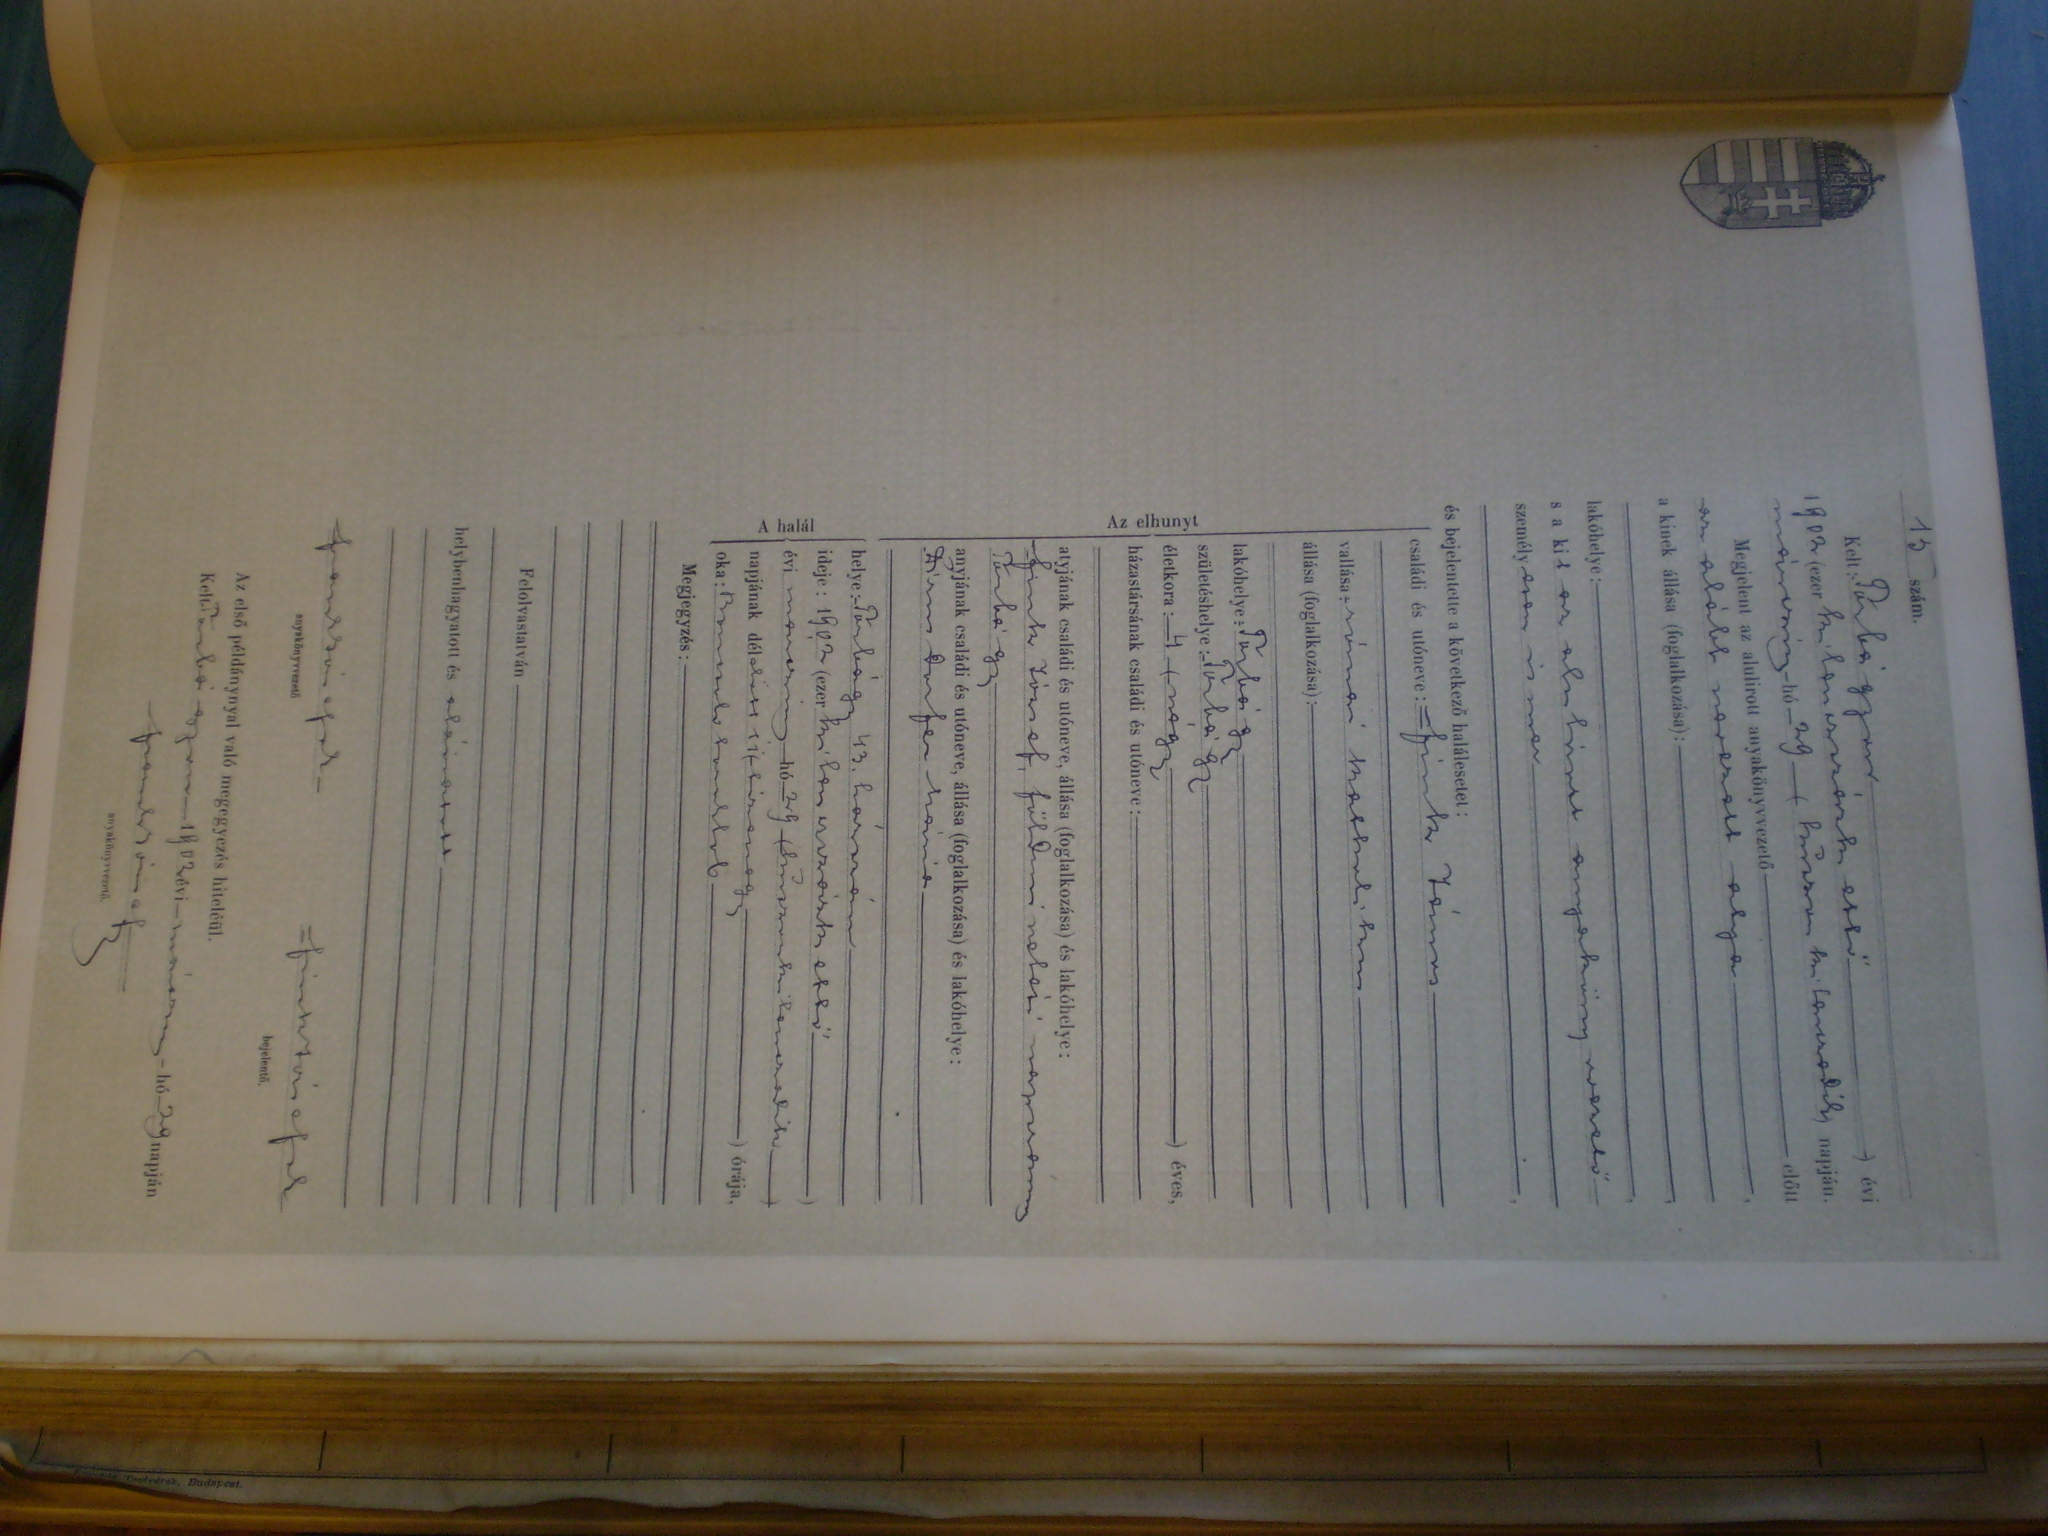 15 szám.
Kelt: Törbágyon ) évi
1902 (ezer kilenczszázkettő
márczius hó 29 ( huszonkilenczedik) napján.
Megjelent az alulirott anyakönyvvezető előtt
az alább nevezett atyja ,
a kinek állása (foglalkozása): ,
lakóhelye: ,
s a kit az alulirott anyakönyvvezető
személyesen ismer ,
és bejelentette a következő halálesetet:
Az elhunyt
családi és utóneve: Fink János
vallása: római katholikus
állása (foglalkozása):
lakóhelye: Törbágy
születéshelye: Törbágy
életkora: 4 (négy ) éves,
házastársának családi és utóneve:
atyjának családi és utóneve, állása (foglalkozása) és lakóhelye:
Fink József, földmivelési napszámos
Törbágy
anyjának családi és utóneve, állása (foglalkozása) és lakóhelye:
Mária
A halál
helye: Törbágy 43. házszám
ideje: 1902 (ezer kilenczszázkettő )
évi márczius hó 29 (huszonkilenczedik )
napjának délelőtt ) órája,
oka:
Megjegyzés:
Felolvastatván
helybenhagyatott és aláiratott
anyakönyvvezető
Fink József
bejelentő.
Az első példánynyal való megegyezés hiteléül.
Kelt Törbágyon 1902 évi márczius hó 29 napján
anyakönyvvezető.
Testvérek, Budapest.